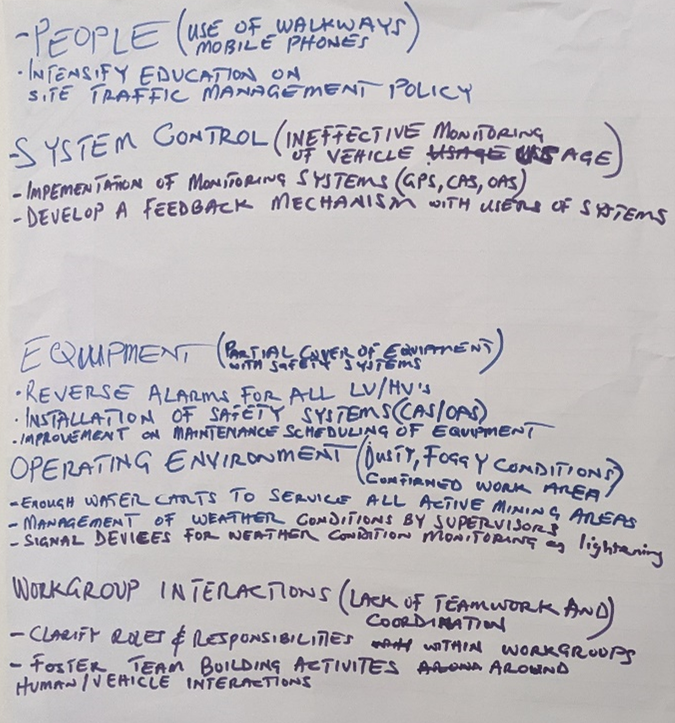 - PEOPLE (USE OF WALKWAYS
MOBILE PHONES)
· INTENSIFY EDUCATION ON
SITE TRAFFIC MANAGEMENT POLICY
- SYSTEM CONTROL (INEFFECTIVE MONITORING
OF VEHICLE USAGE USAGE)
- IMPEMENTATION OF MONITORING SYSTEMS (GPS, CAS, OAS)
- DEVELOP A FEEDBACK MECHANISM WITH USERS OF SYSTEMS
EQUIPMENT (PARTIAL COVER OF EQUIPMENT)
WITH SAFETY SYSTEMS
· REVERSE ALARMS FOR ALL LV/HV's
· INSTALLATION OF SAFETY SYSTEMS (CAS/OAS)
· IMPROVEMENT ON MAINTENANCE SCHEDULING OF EQUIPMENT
OPERATING ENVIRONMENT (DUSTY, FOGGY CONDITIONS)
CONFIRNED WORK AREA
- ENOUGH WATER CARTS TO SERVICE ALL ACTIVE MINING AREAS
- MANAGEMENT OF WEATHER CONDITIONS BY SUPERVISORS
- SIGNAL DEVICES FOR WEATHER CONDITION MONITORING eg lightening
WORKGROUP INTERACTIONS (LACK OF TEAMWORK AND)
COORDINATION
- CLARIFY ROLES & RESPONSIBILITIES WITHIN WORKGROUPS
- FOSTER TEAM BUILDING ACTIVITES AROUND
HUMAN/VEHICLE INTERACTIONS